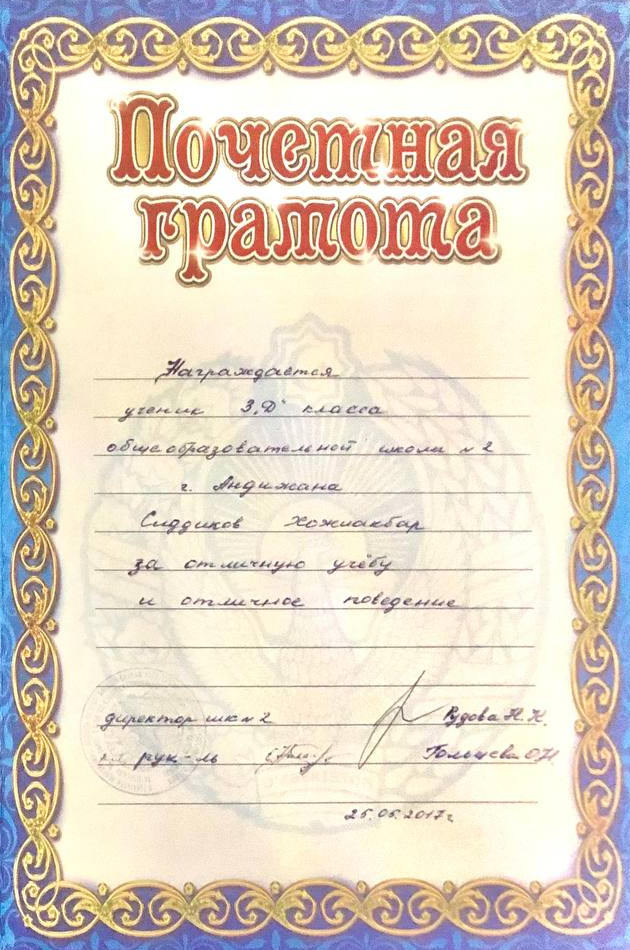 Почетная
грамота
Награждается
ученик 3„Д" класса
общеобразовательной школы №2
г. Андижана
Сиддиков Хожиакбар
за отличную учёбу
и отличное поведение
директор шк №2 Рудова Н.Н.
кл. рук-ль О.Н
25.05.2017г